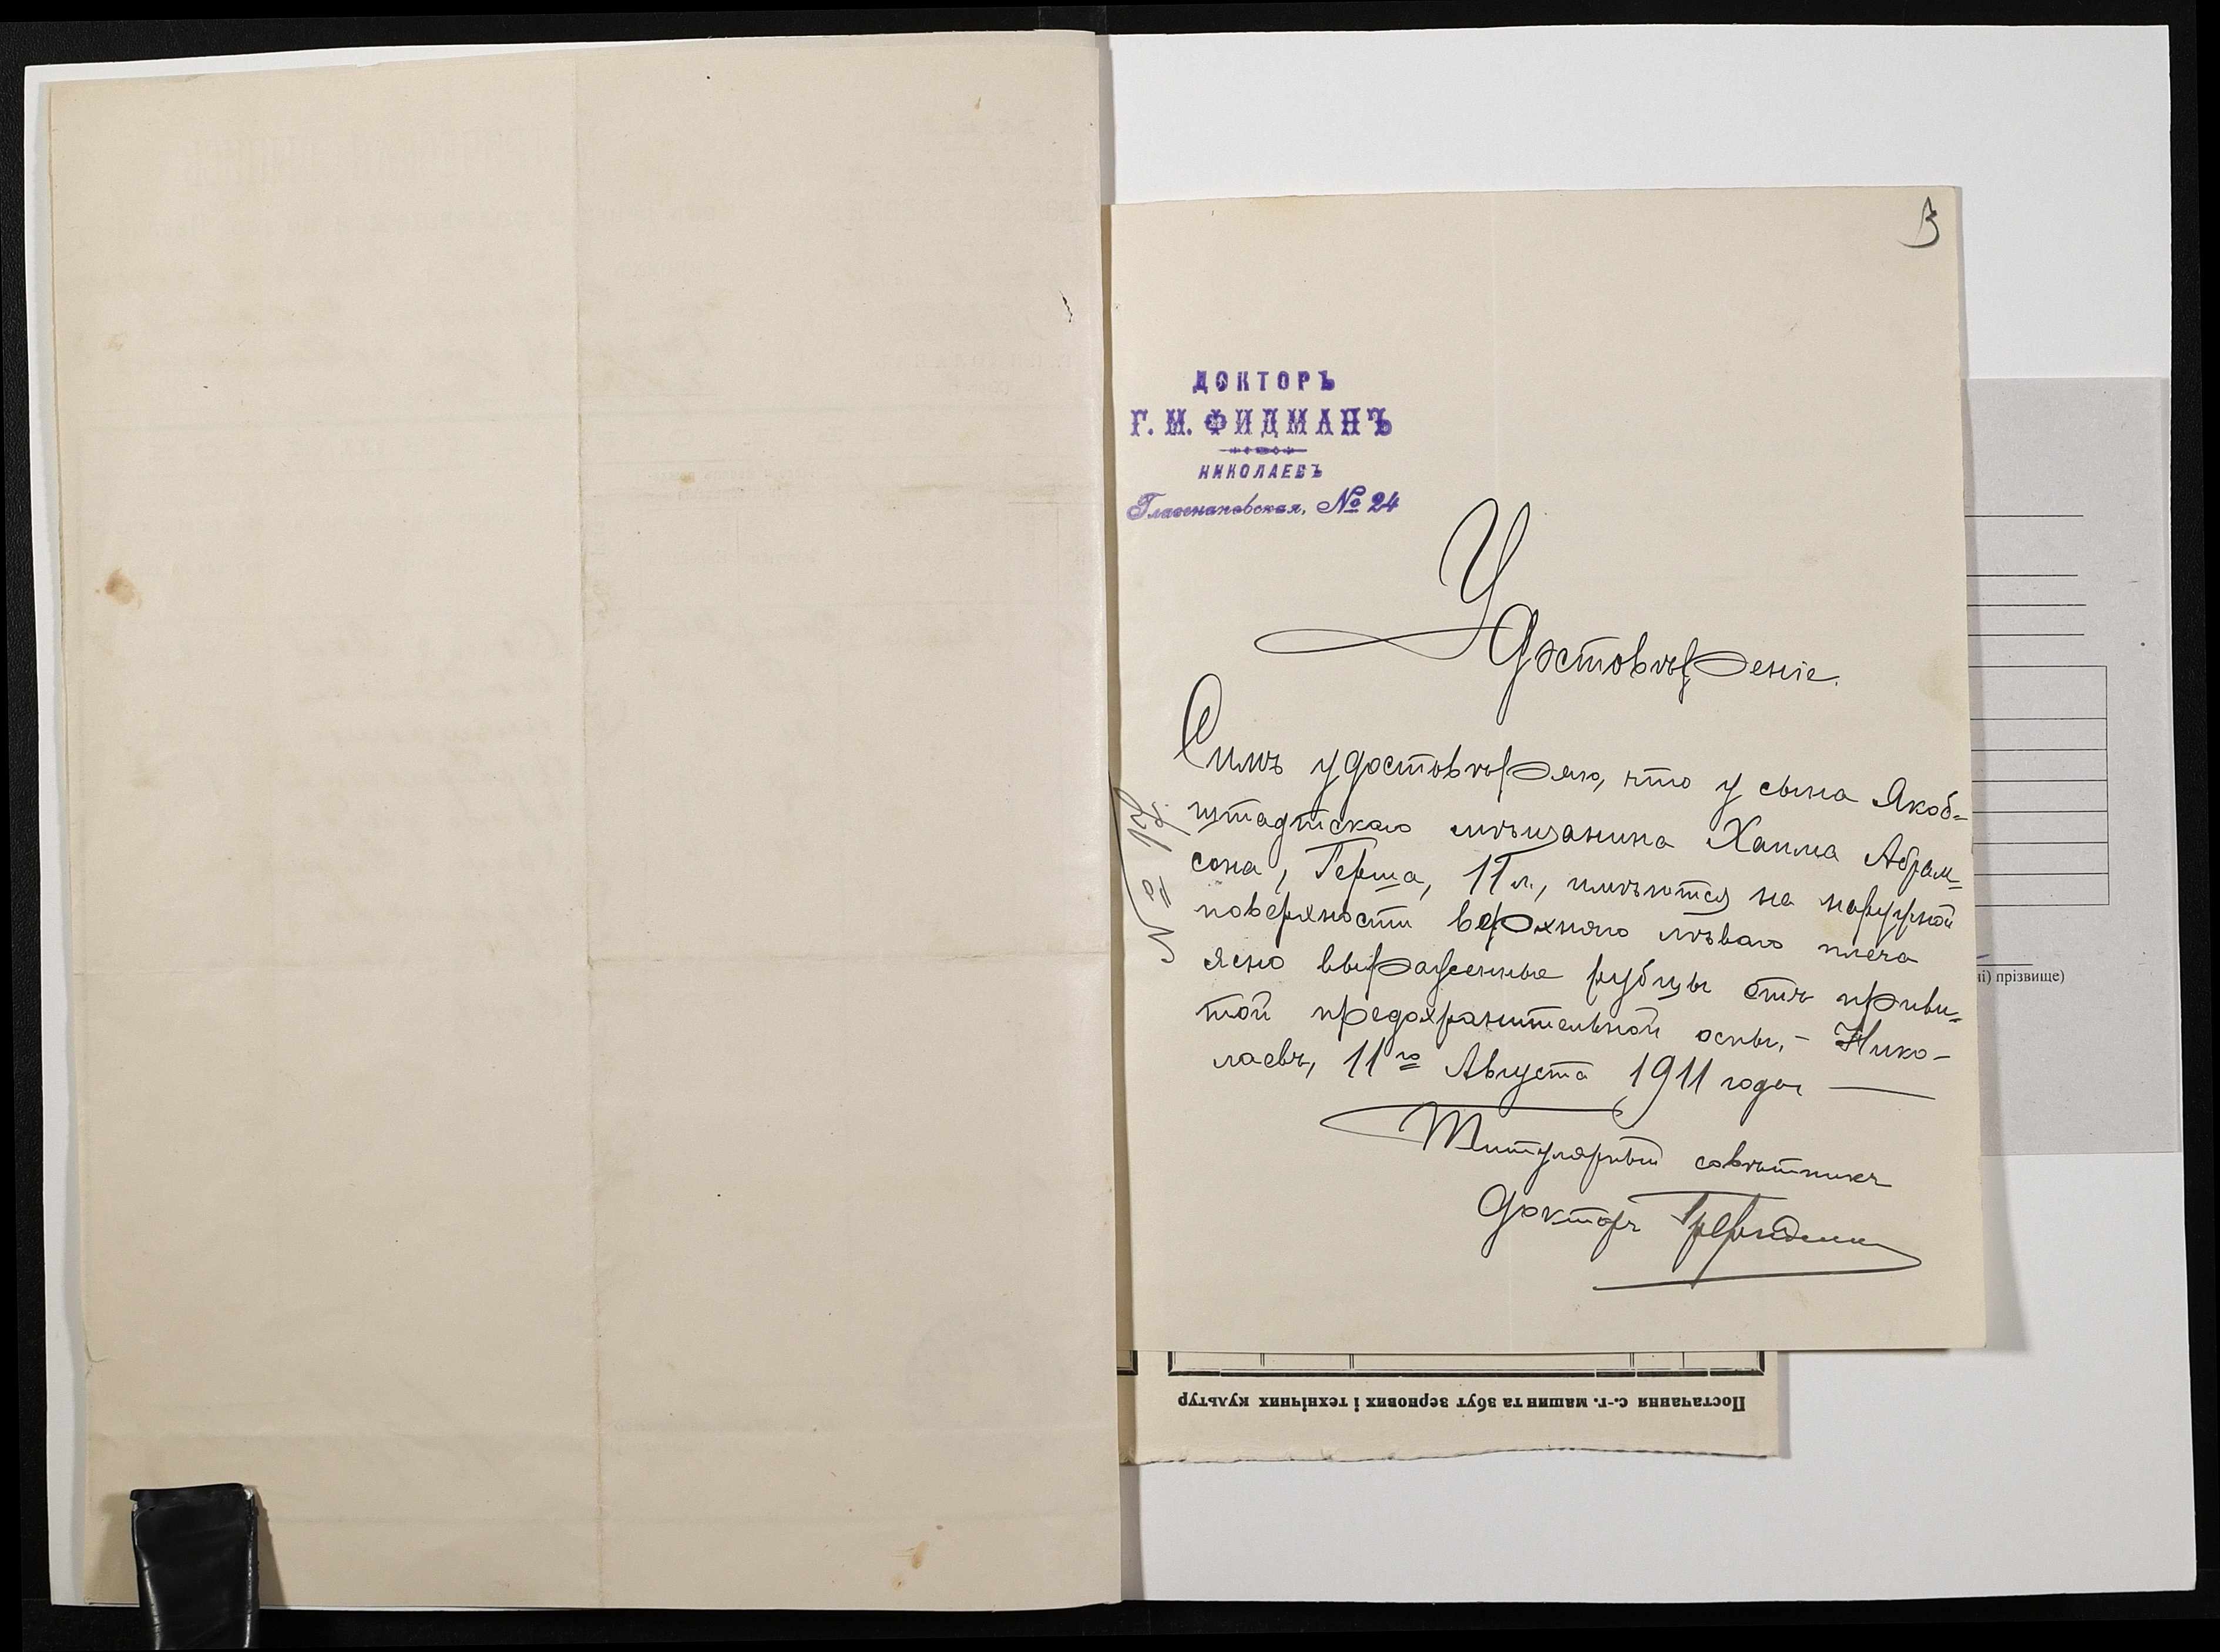 ДОКТОРЪ
Г. М. ФИДМАНЪ
НИКОЛАЕВЪ
Глазенаповская, № 24
Удостовѣреніе.
Симъ удостовѣряю, что у сына Якоб=
штадтскаго мѣщанина Хаима Абрам=
сона, Герша, 11 л., имѣются на наружной
поверхности верхняго лѣваго плеча
ясно выраженные рубцы отъ приви=
той предохранительной оспы. – Нико-
лаевъ, 11го Августа 1911 года
Титулярный совѣтникъ
Докторъ ГМФидман
№
ні) прізвище)
Постачання с.-г. машин та збут зернових і технічних культур